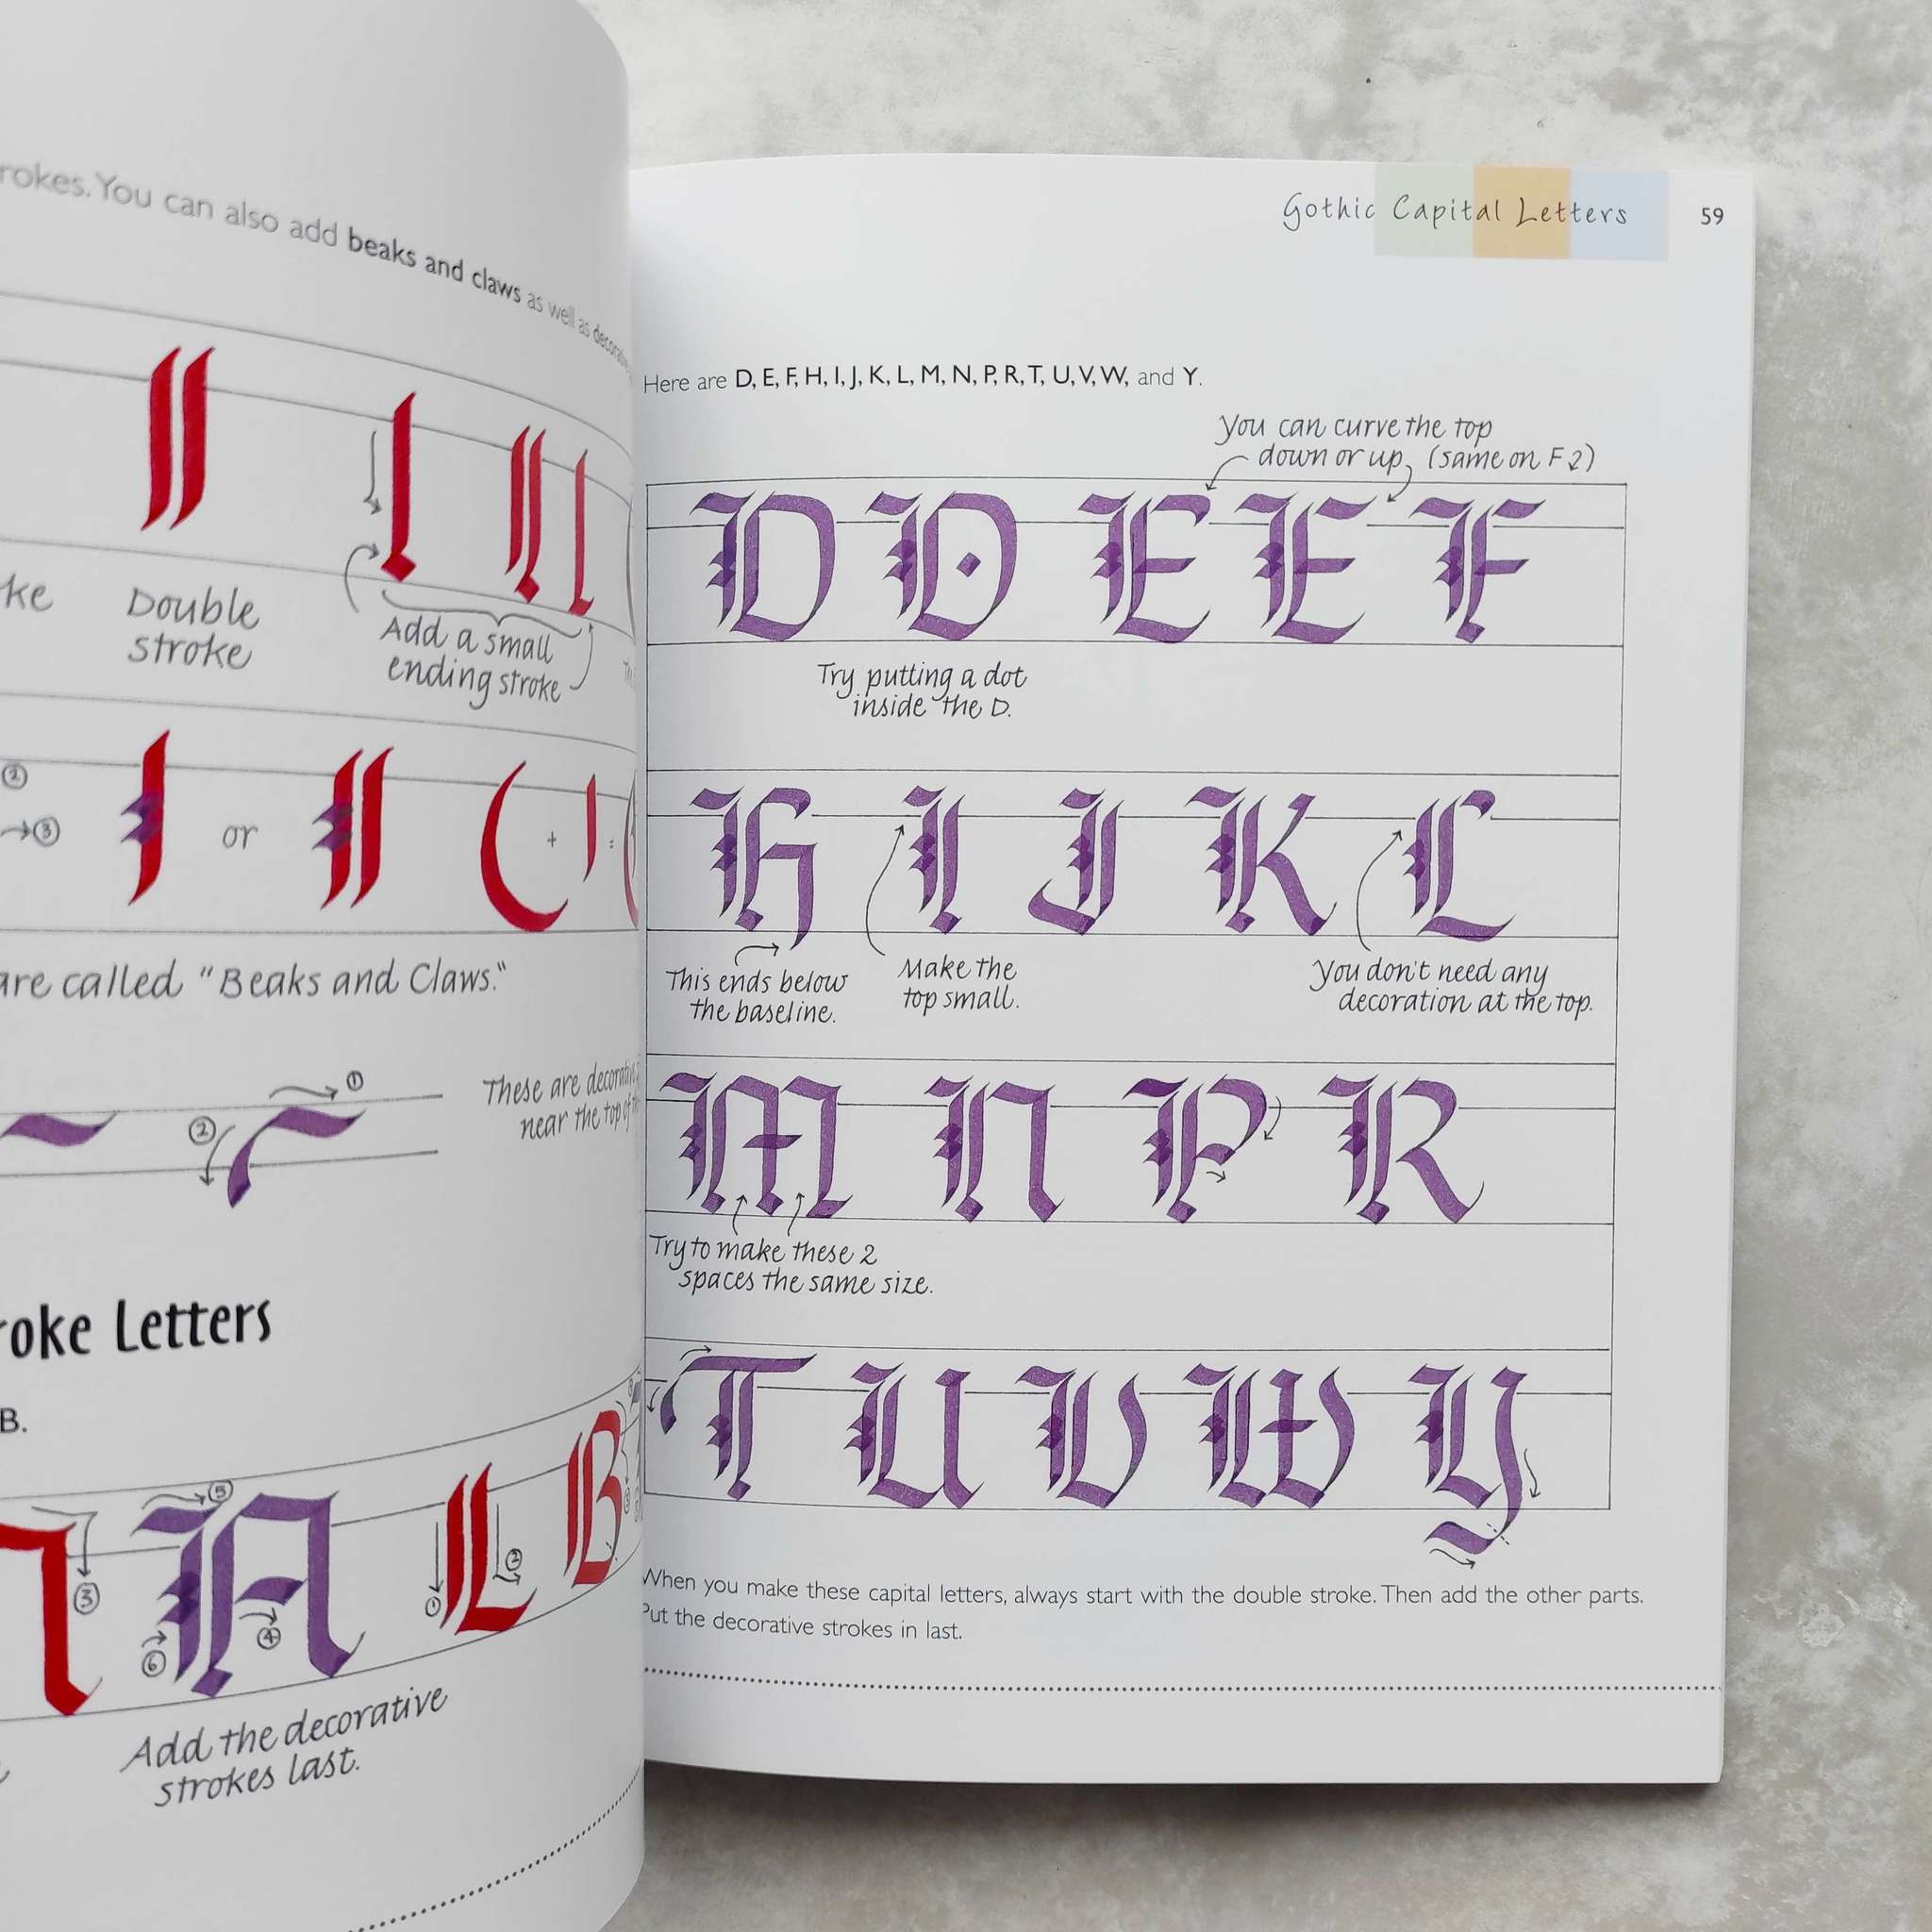 You can also add beaks and claws as well as
Double
stroke
Add a small
ending stroke
②
→③
or
+
=
are called "Beaks and Claws."
①
②
These are
near the top of
Letters
B.
③
⑤
④
⑥
A
①
②
L
B
Add the decorative
strokes last.
Gothic Capital Letters
59
Here are D, E, F, H, I, J, K, L, M, N, P, R, T, U, V, W, and Y.
You can curve the top
down or up, (same on F 2)
D D E E F
Try putting a dot
inside the D.
H I J K L
This ends below
the baseline.
Make the
top small.
You don't need any
decoration at the top.
M N P R
Try to make these 2
spaces the same size.
T U V W Y
When you make these capital letters, always start with the double stroke. Then add the other parts.
Put the decorative strokes in last.